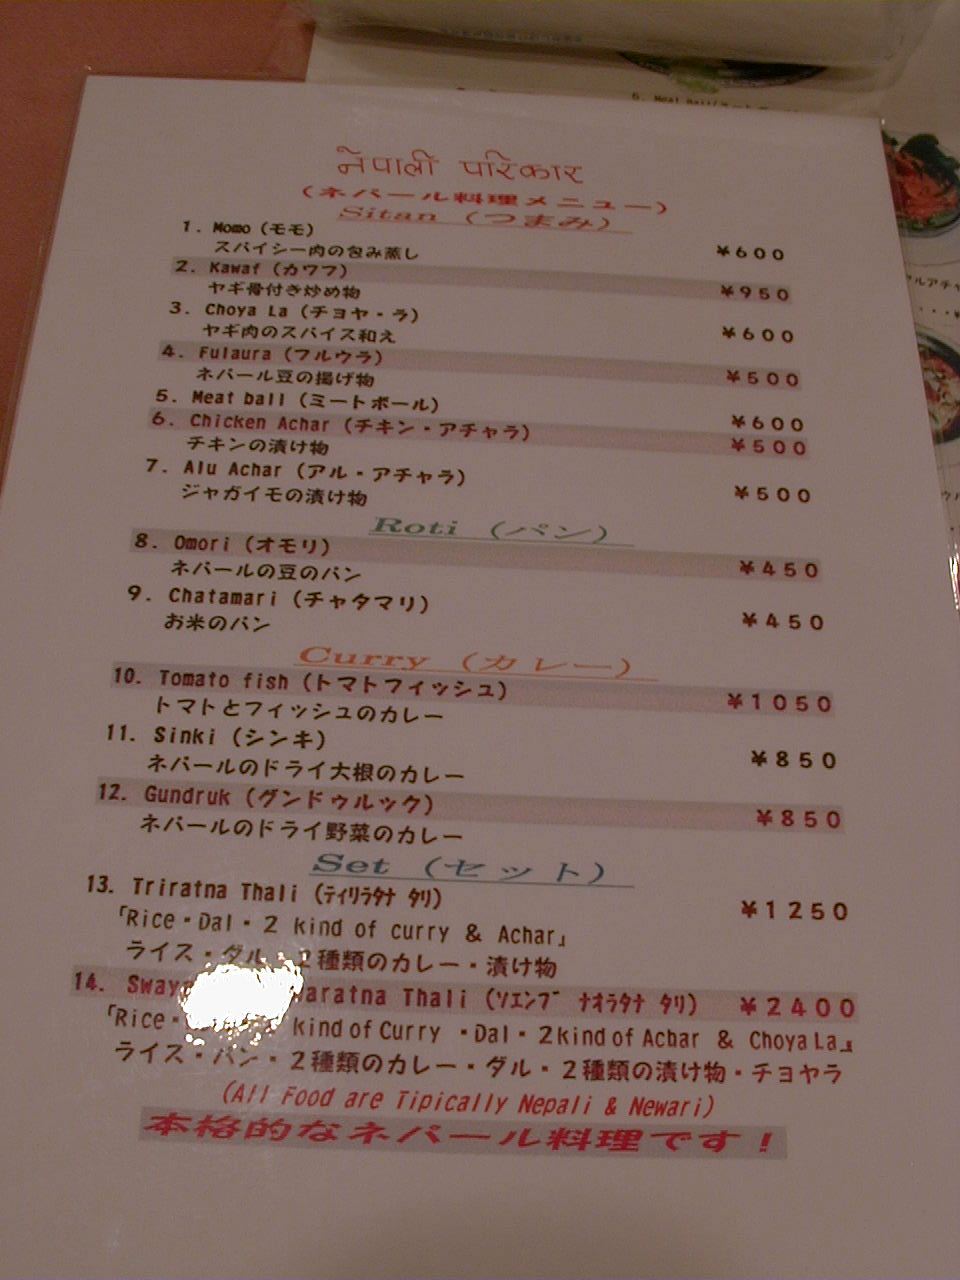 नेपाली परिकार
(ネパール料理メニュー)
Sitan (つまみ)
1. Momo (モモ)
スパイシー肉の包み蒸し ¥600
2. Kawaf (カワフ)
ヤギ骨付き炒め物 ¥950
3. Choya La (チョヤ・ラ)
ヤギ肉のスパイス和え ¥600
4. Fulaura (フルウラ)
ネパール豆の揚げ物 ¥500
5. Meat ball (ミートボール) ¥600
6. Chicken Achar (チキン・アチャラ) ¥500
チキンの漬け物
7. Alu Achar (アル・アチャラ)
ジャガイモの漬け物 ¥500
Roti (パン)
8. Omori (オモリ) ¥450
ネパールの豆のパン
9. Chatamari (チャタマリ) ¥450
お米のパン
Curry (カレー)
10. Tomato fish (トマトフィッシュ) ¥1050
トマトとフィッシュのカレー
11. Sinki (シンキ) ¥850
ネパールのドライ大根のカレー
12. Gundruk (グンドゥルック) ¥850
ネパールのドライ野菜のカレー
Set (セット)
13. Triratna Thali (ﾃｨﾘﾗﾀﾅ ﾀﾘ) ¥1250
「Rice・Dal・2 kind of curry & Achar」
ライス・ダル・2種類のカレー・漬け物
14. Thali (ｿｴﾝﾌﾞ ﾅｵﾗﾀﾅ ﾀﾘ) ¥2400
「Rice・ kind of Curry ・Dal・2kind of Achar & Choya La」
ライス・パン・2種類のカレー・ダル・2種類の漬け物・チョヤラ
(All Food are Tipically Nepali & Newari)
本格的なネパール料理です！